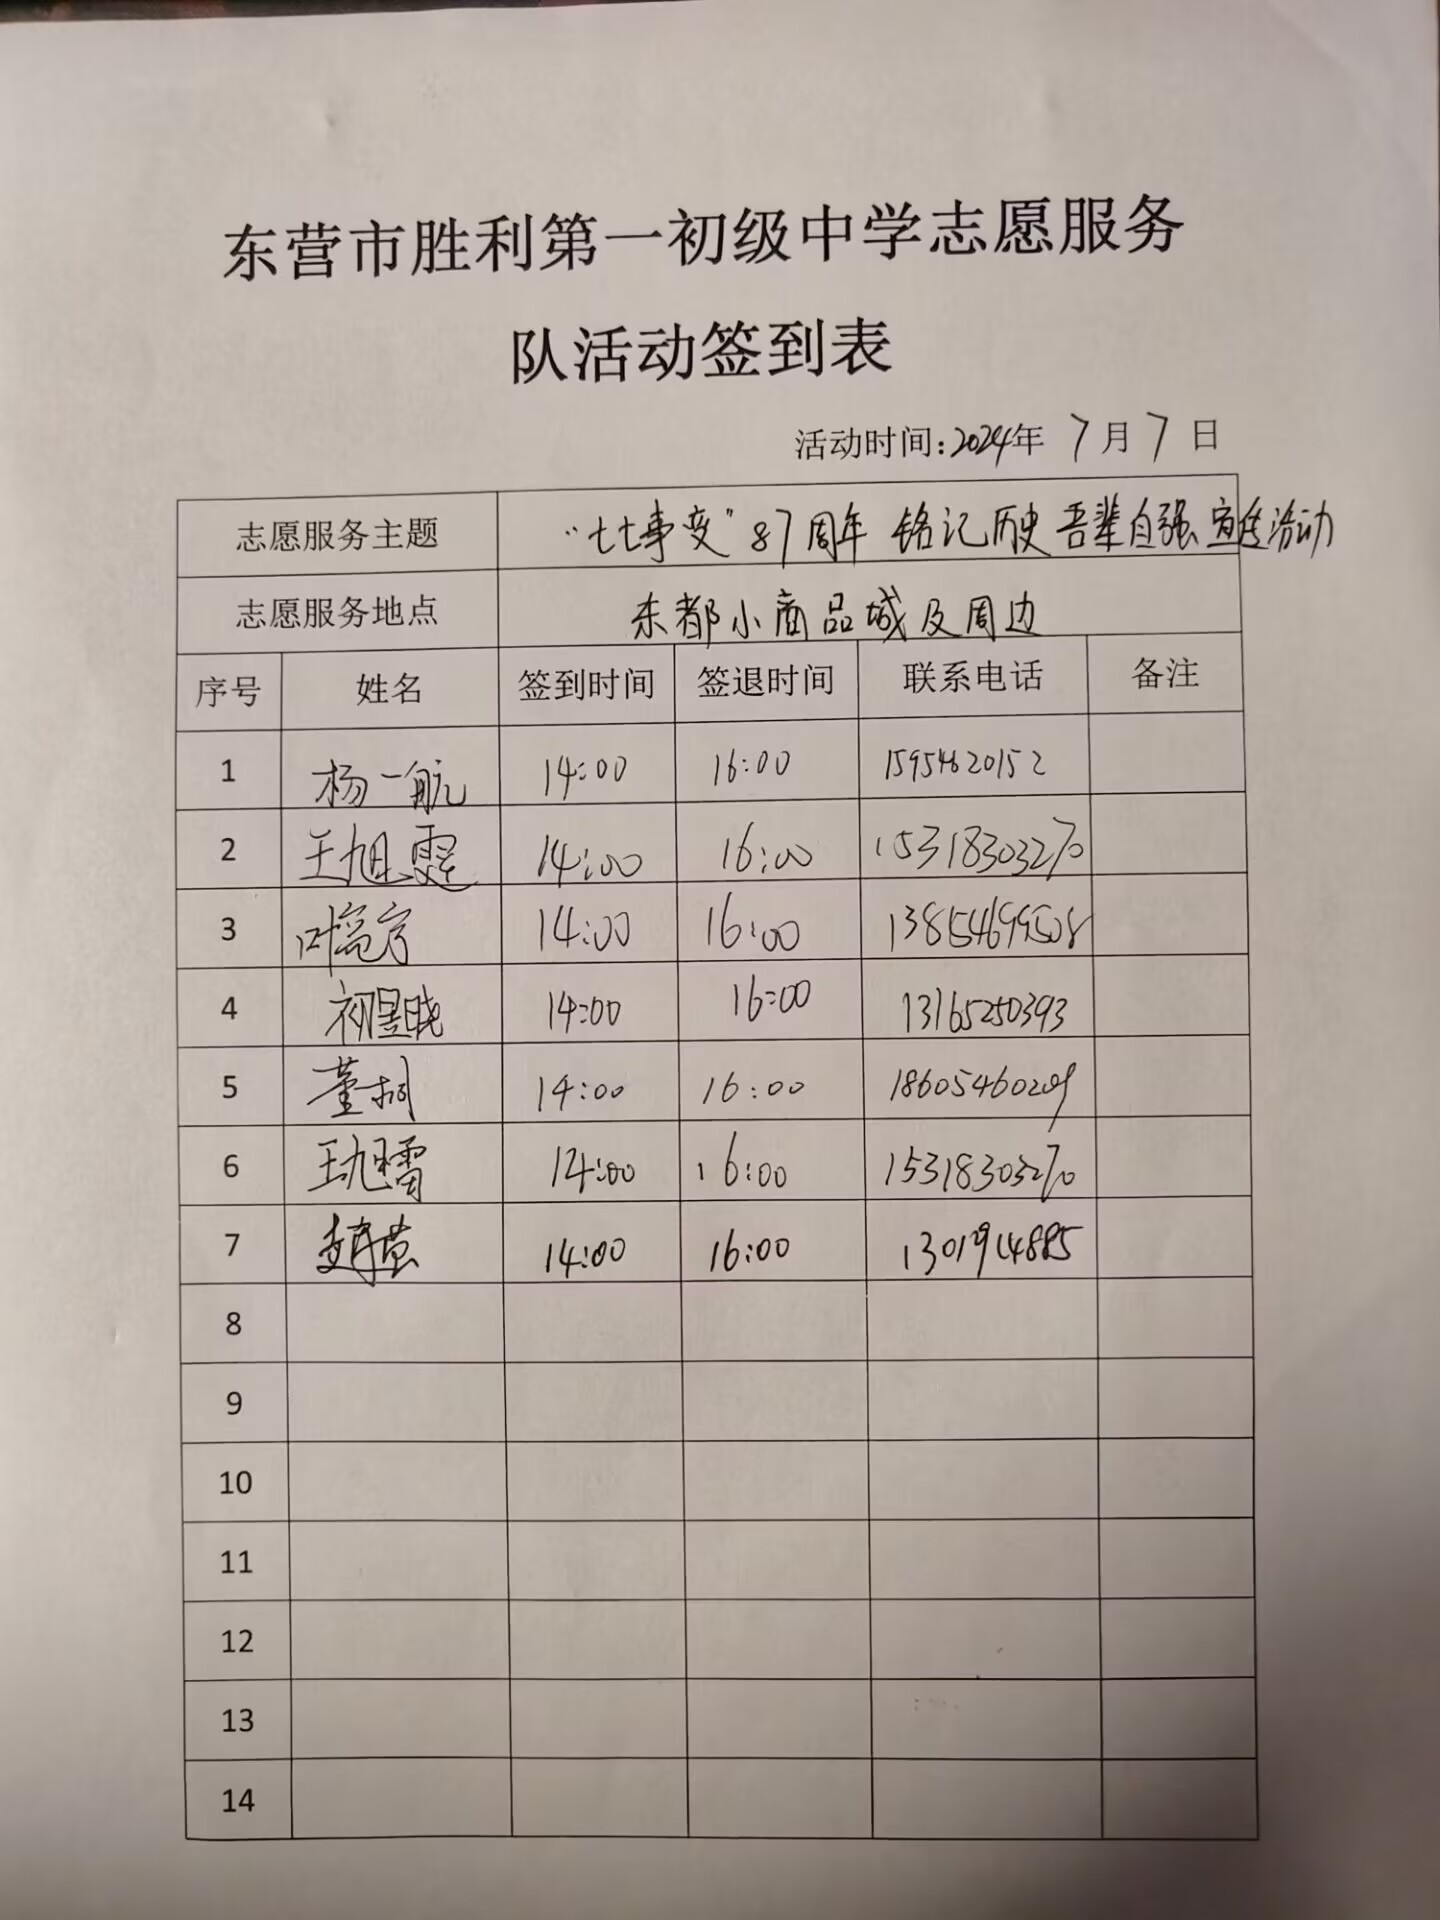 东营市胜利第一初级中学志愿服务
队活动签到表
活动时间:2024年 7月7日
志愿服务主题 “七七事变”87周年 铭记历史 吾辈自强 宣传活动
志愿服务地点 东都小商品城及周边
序号 姓名 签到时间 签退时间 联系电话 备注
1 杨一航 14:00 16:00 15954620152
2 王旭霆 14:00 16:00 15318303270
3 14:00 16:00
4 初昱晓 14:00 16:00 13165250393
5 董桐 14:00 16:00 18605460209
6 王旭雷 14:00 16:00 15318303270
7 14:00 16:00
8
9
10
11
12
13
14